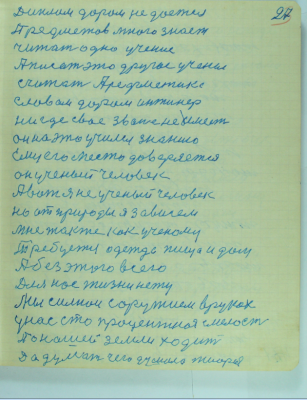 27
Диплом даром не дается
Предметов много знает
читат одно учение
А писат это другое учения
считат Аредметика
словам даром интинер
нигде свое звание не имеет
он на это учился знанию
Ему его место доверяется
он ученый человек
А вот я не ученый человек
но от природы я зависем
мне также как ученому
Требуется одежда пища и дом
А без этого всего
Для нас жизни нету
Мы силной с оружием в руках
у нас сто процентная смелост
По нашей земли ходит
Задумат чего